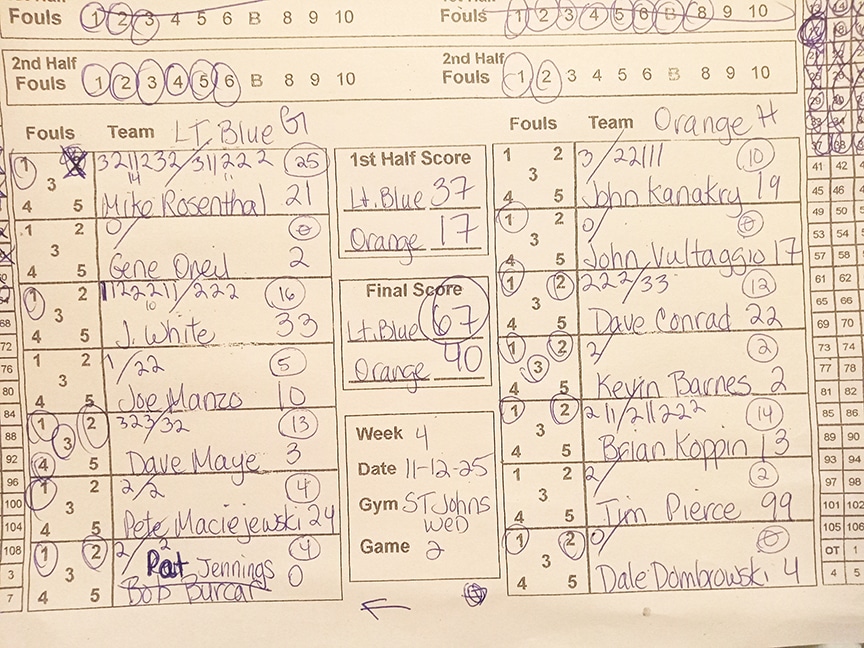 Fouls 1 2 3 4 5 6 B 8 9 10
Fouls 1 2 3 4 5 6 B 8 9 10
2nd Half
Fouls 1 2 3 4 5 6 B 8 9 10
2nd Half
Fouls 1 2 3 4 5 6 B 8 9 10
Fouls Team LT. Blue G1
1 2 3 4 5
3211232/311222 25
14 11
Mike Rosenthal 21
1 2 3 4 5
0/ 0
Gene Oneil 2
1 2 3 4 5
1122211/222 16
10
J. White 33
1 2 3 4 5
1/22 5
Joe Manzo 10
1 2 3 4 5
323/32 13
Dave Maye 3
1 2 3 4 5
2/2 4
Pete Maciejewski 24
1 2 3 4 5
2/2 4
Pat Jennings 0
Bob Burcar
1st Half Score
Lt. Blue 37
Orange 17
Final Score
Lt. Blue 67
Orange 40
Week 4
Date 11-12-25
Gym ST Johns
WED
Game 2
Fouls Team Orange H
1 2 3 4 5
3/22111 10
John Kanakry 19
1 2 3 4 5
0/ 0
John Vultaggio 17
1 2 3 4 5
222/33 12
Dave Conrad 22
1 2 3 4 5
2/ 2
Kevin Barnes 2
1 2 3 4 5
211/211222 14
Brian Koppin 13
1 2 3 4 5
2/ 2
Tim Pierce 99
1 2 3 4 5
0/ 0
Dale Dombrowski 4
68
72
76
80
84
88
92
96
100
104
108
3
7
41 42
45 46
49 50
53 54
57 58
61 62
65 66
69 70
73 74
77 78
81 82
85 86
89 90
93 94
97 98
101 102
105 106
OT 1
4 5